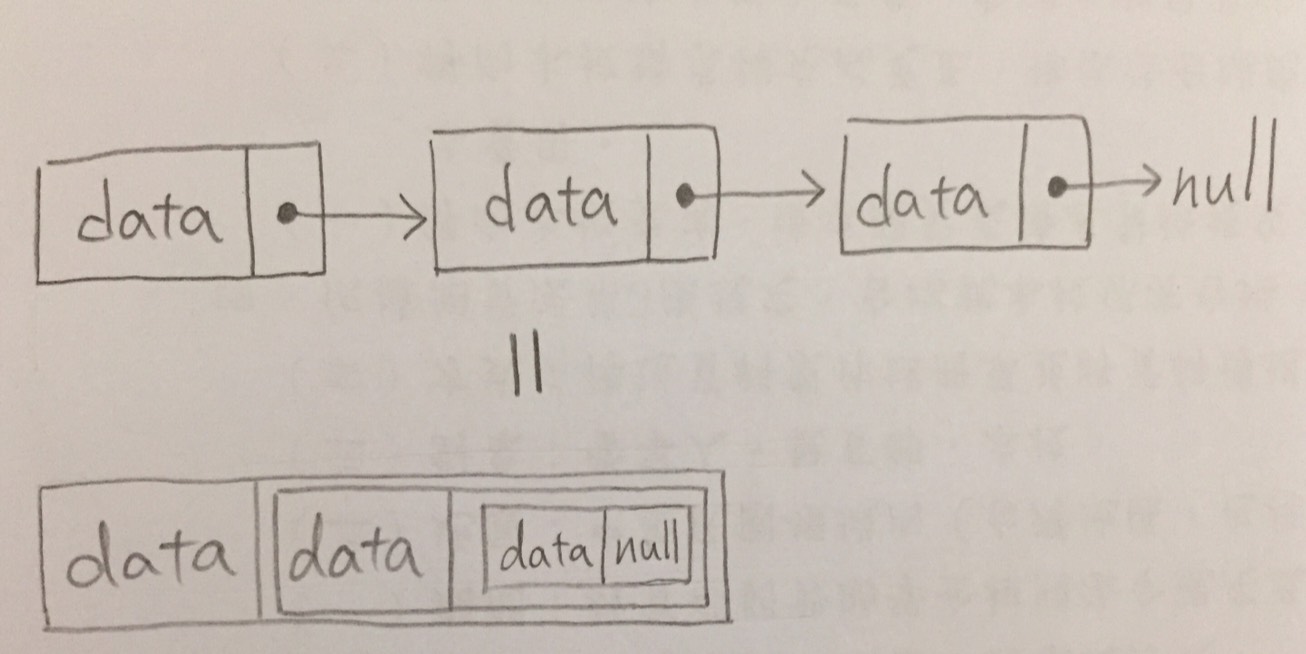 data data data null
data data data null